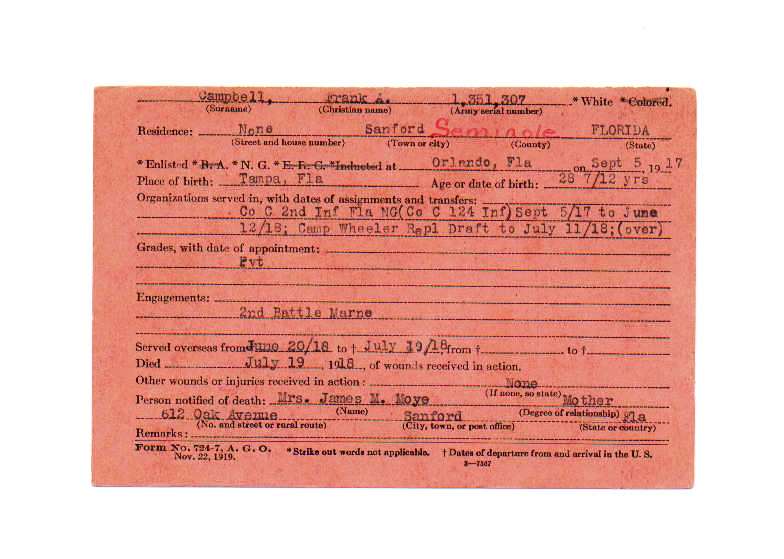 Campbell, Frank A. 1,351,307 * White * Colored.
(Surname) (Christian name) (Army serial number)
Residence: None Sanford Seminole FLORIDA
(Street and house number) (Town or city) (County) (State)
* Enlisted * R. A. * N. G. * E. R. C. * Inducted at Orlando, Fla on Sept 5, 1917
Place of birth: Tampa, Fla Age or date of birth: 28 7/12 yrs
Organizations served in, with dates of assignments and transfers:
Co C 2nd Inf Fla NG(Co C 124 Inf)Sept 5/17 to June
12/18; Camp Wheeler Repl Draft to July 11/18;(over)
Grades, with date of appointment:
Pvt
Engagements:
2nd Battle Marne
Served overseas from June 20/18 to † July 19/18, from † to †
Died July 19, 1918, of wounds received in action.
Other wounds or injuries received in action: None
(If none, so state)
Person notified of death: Mrs. James M. Moye Mother
(Name) (Degree of relationship)
612 Oak Avenue Sanford Fla
(No. and street or rural route) (City, town, or post office) (State or country)
Remarks:
Form No. 724-7, A. G. O. * Strike out words not applicable. † Dates of departure from and arrival in the U. S.
Nov. 22, 1919. 3—7567